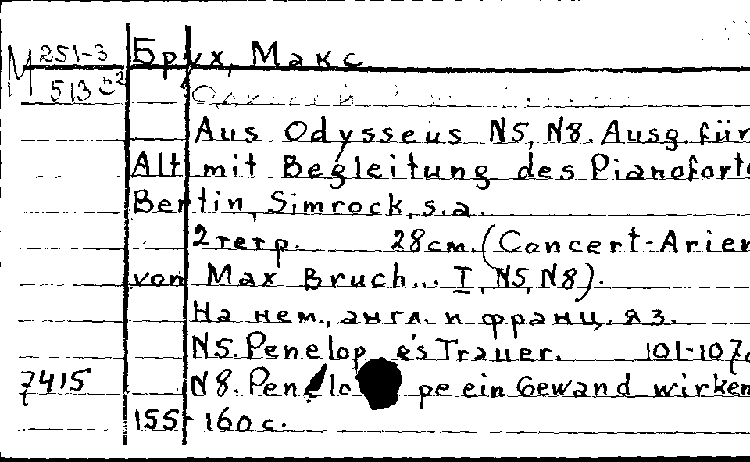 М 251-3 Брух, Макс
513
Aus Odysseus N5, N8. Ausg. für
Alt mit Begleitung des Pianoforte
Bertin, Simrock, s.a.
2тетр. 28cm. (Concert-Arien
von Max Bruch... I, N5, N8).
На нем., англ. и франц. яз.
N5. Penelope's Trauer. 101-107c
7415 N8. Penelope ein Gewand wirken
155-160 с.